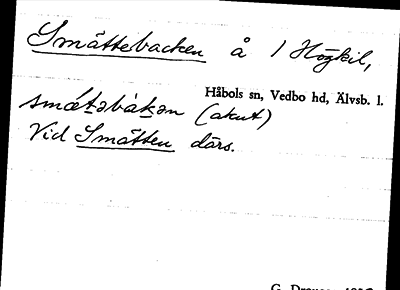 Smättebacken å 1 Högkil,
Håbols sn, Vedbo hd, Älvsb. l.
smǽt̠əbàk̠ən (akut)
Vid Smätten därs.